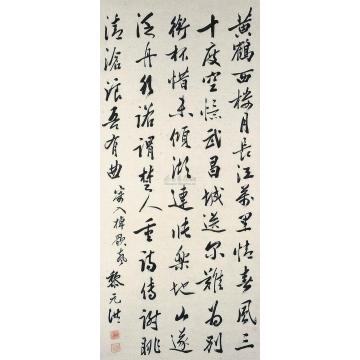 黄鹤西楼月長江萬里情春風三
十度空憶武昌城送尔難為别
銜杯惜未傾湖連張樂地山逐
泛舟行诺謂楚人重詩傳謝朓
清滄浪吾有曲寄入棹歌聲
黎元洪